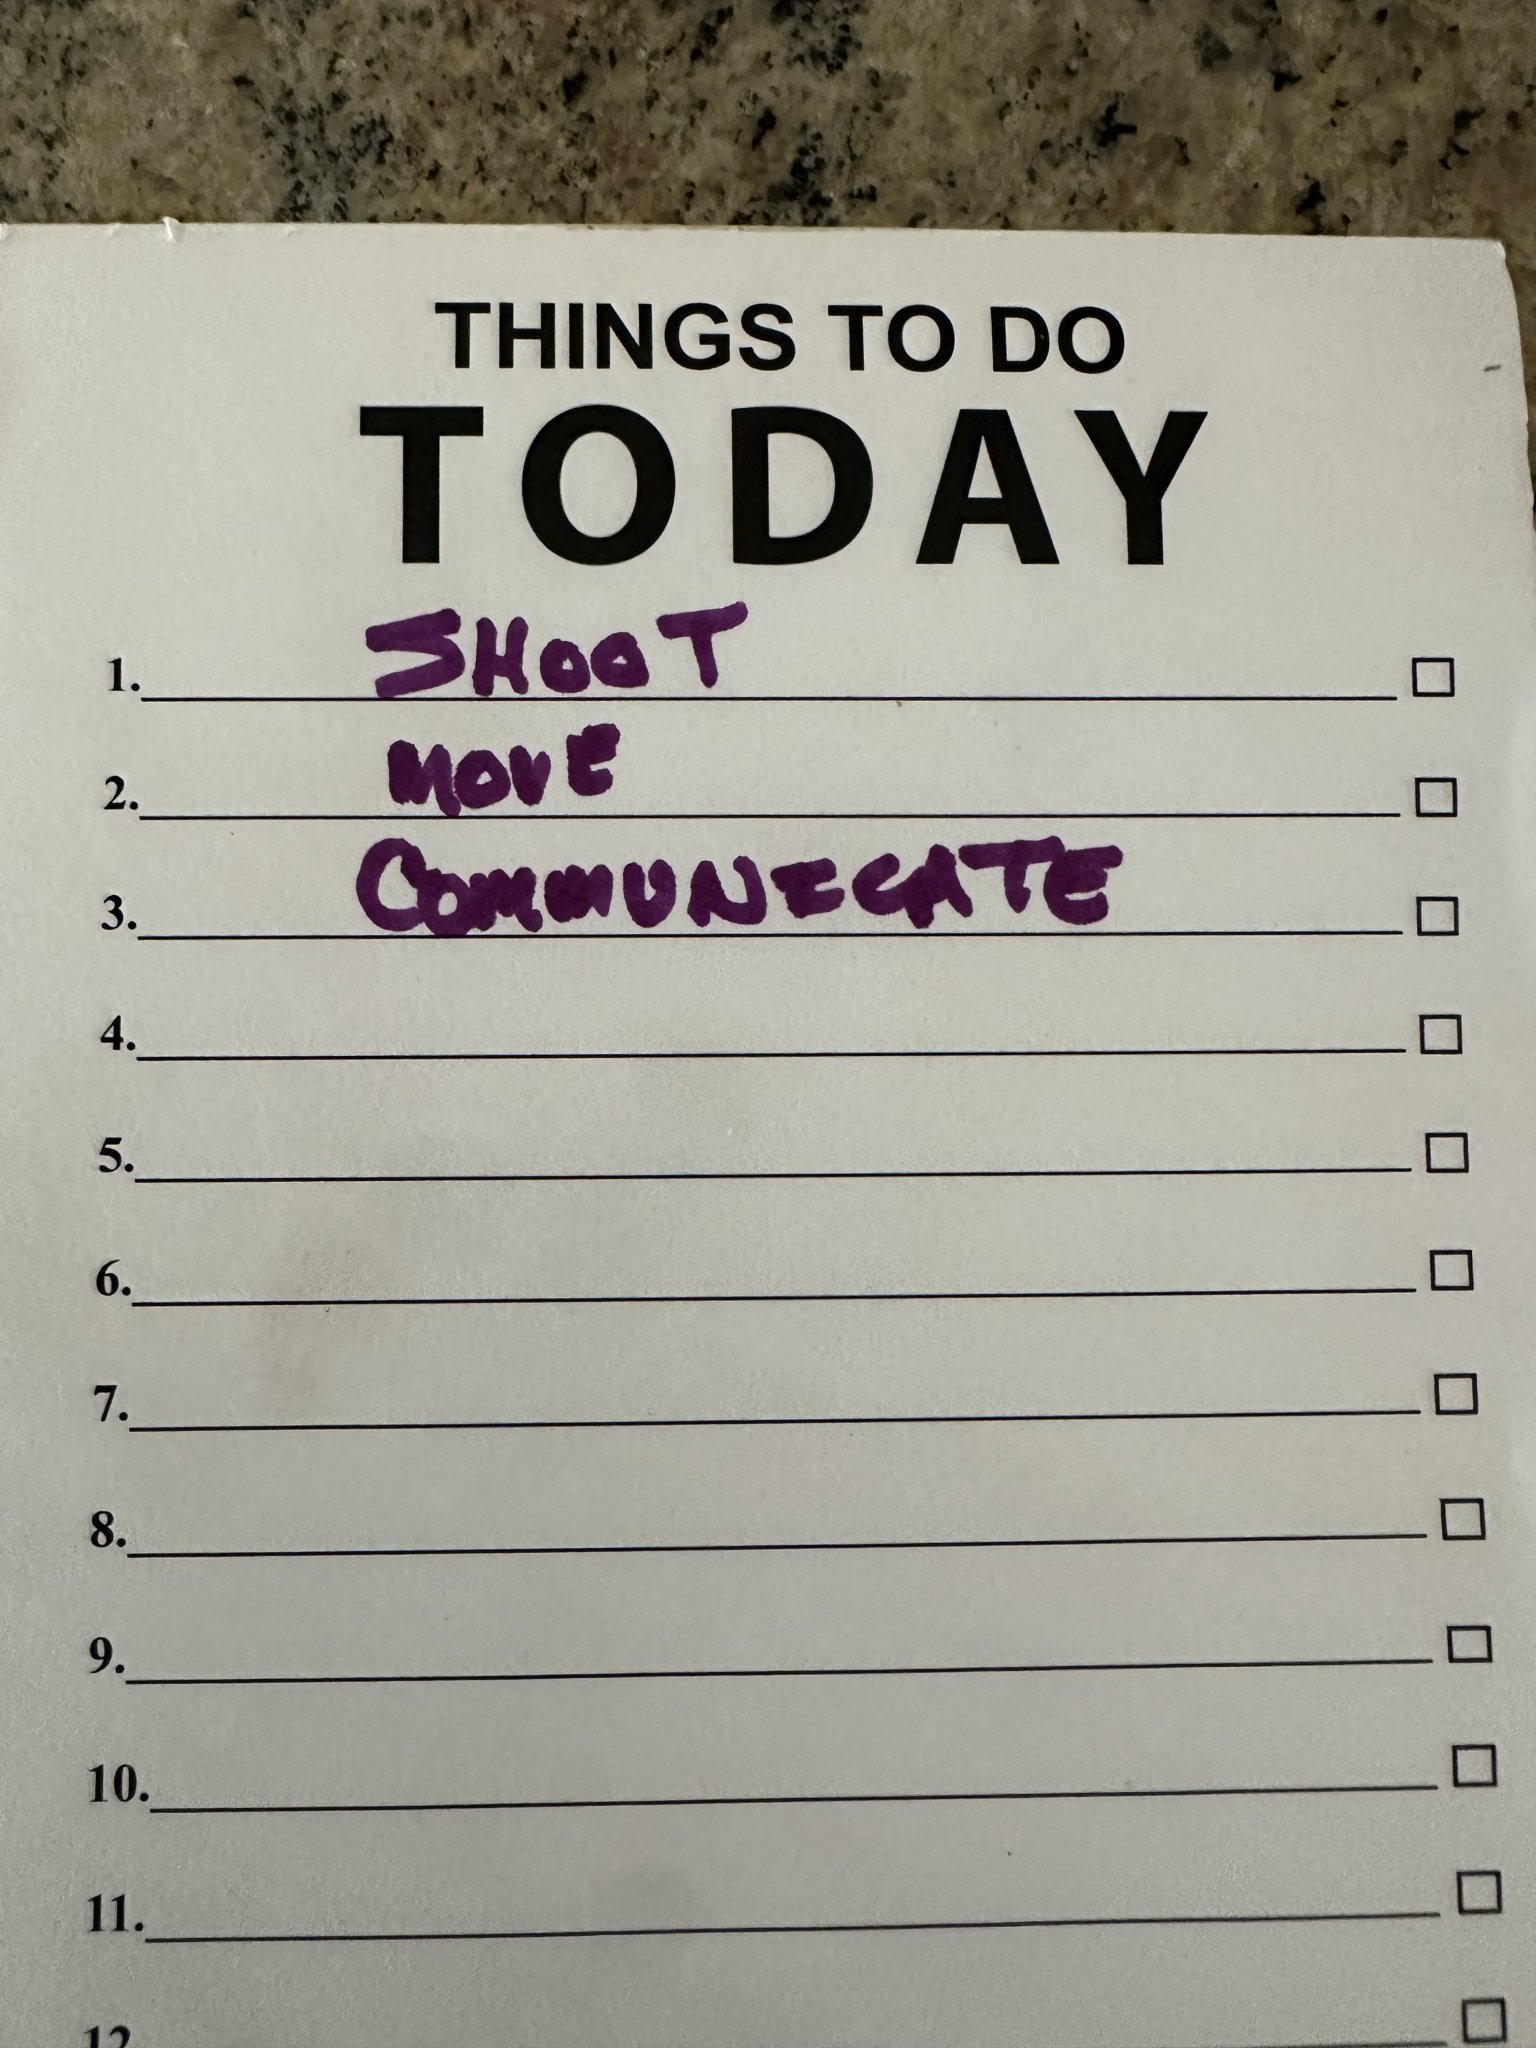 THINGS TO DO
TODAY
1. SHOOT
2. MOVE
3. COMMUNICATE
4.
5.
6.
7.
8.
9.
10.
11.
12